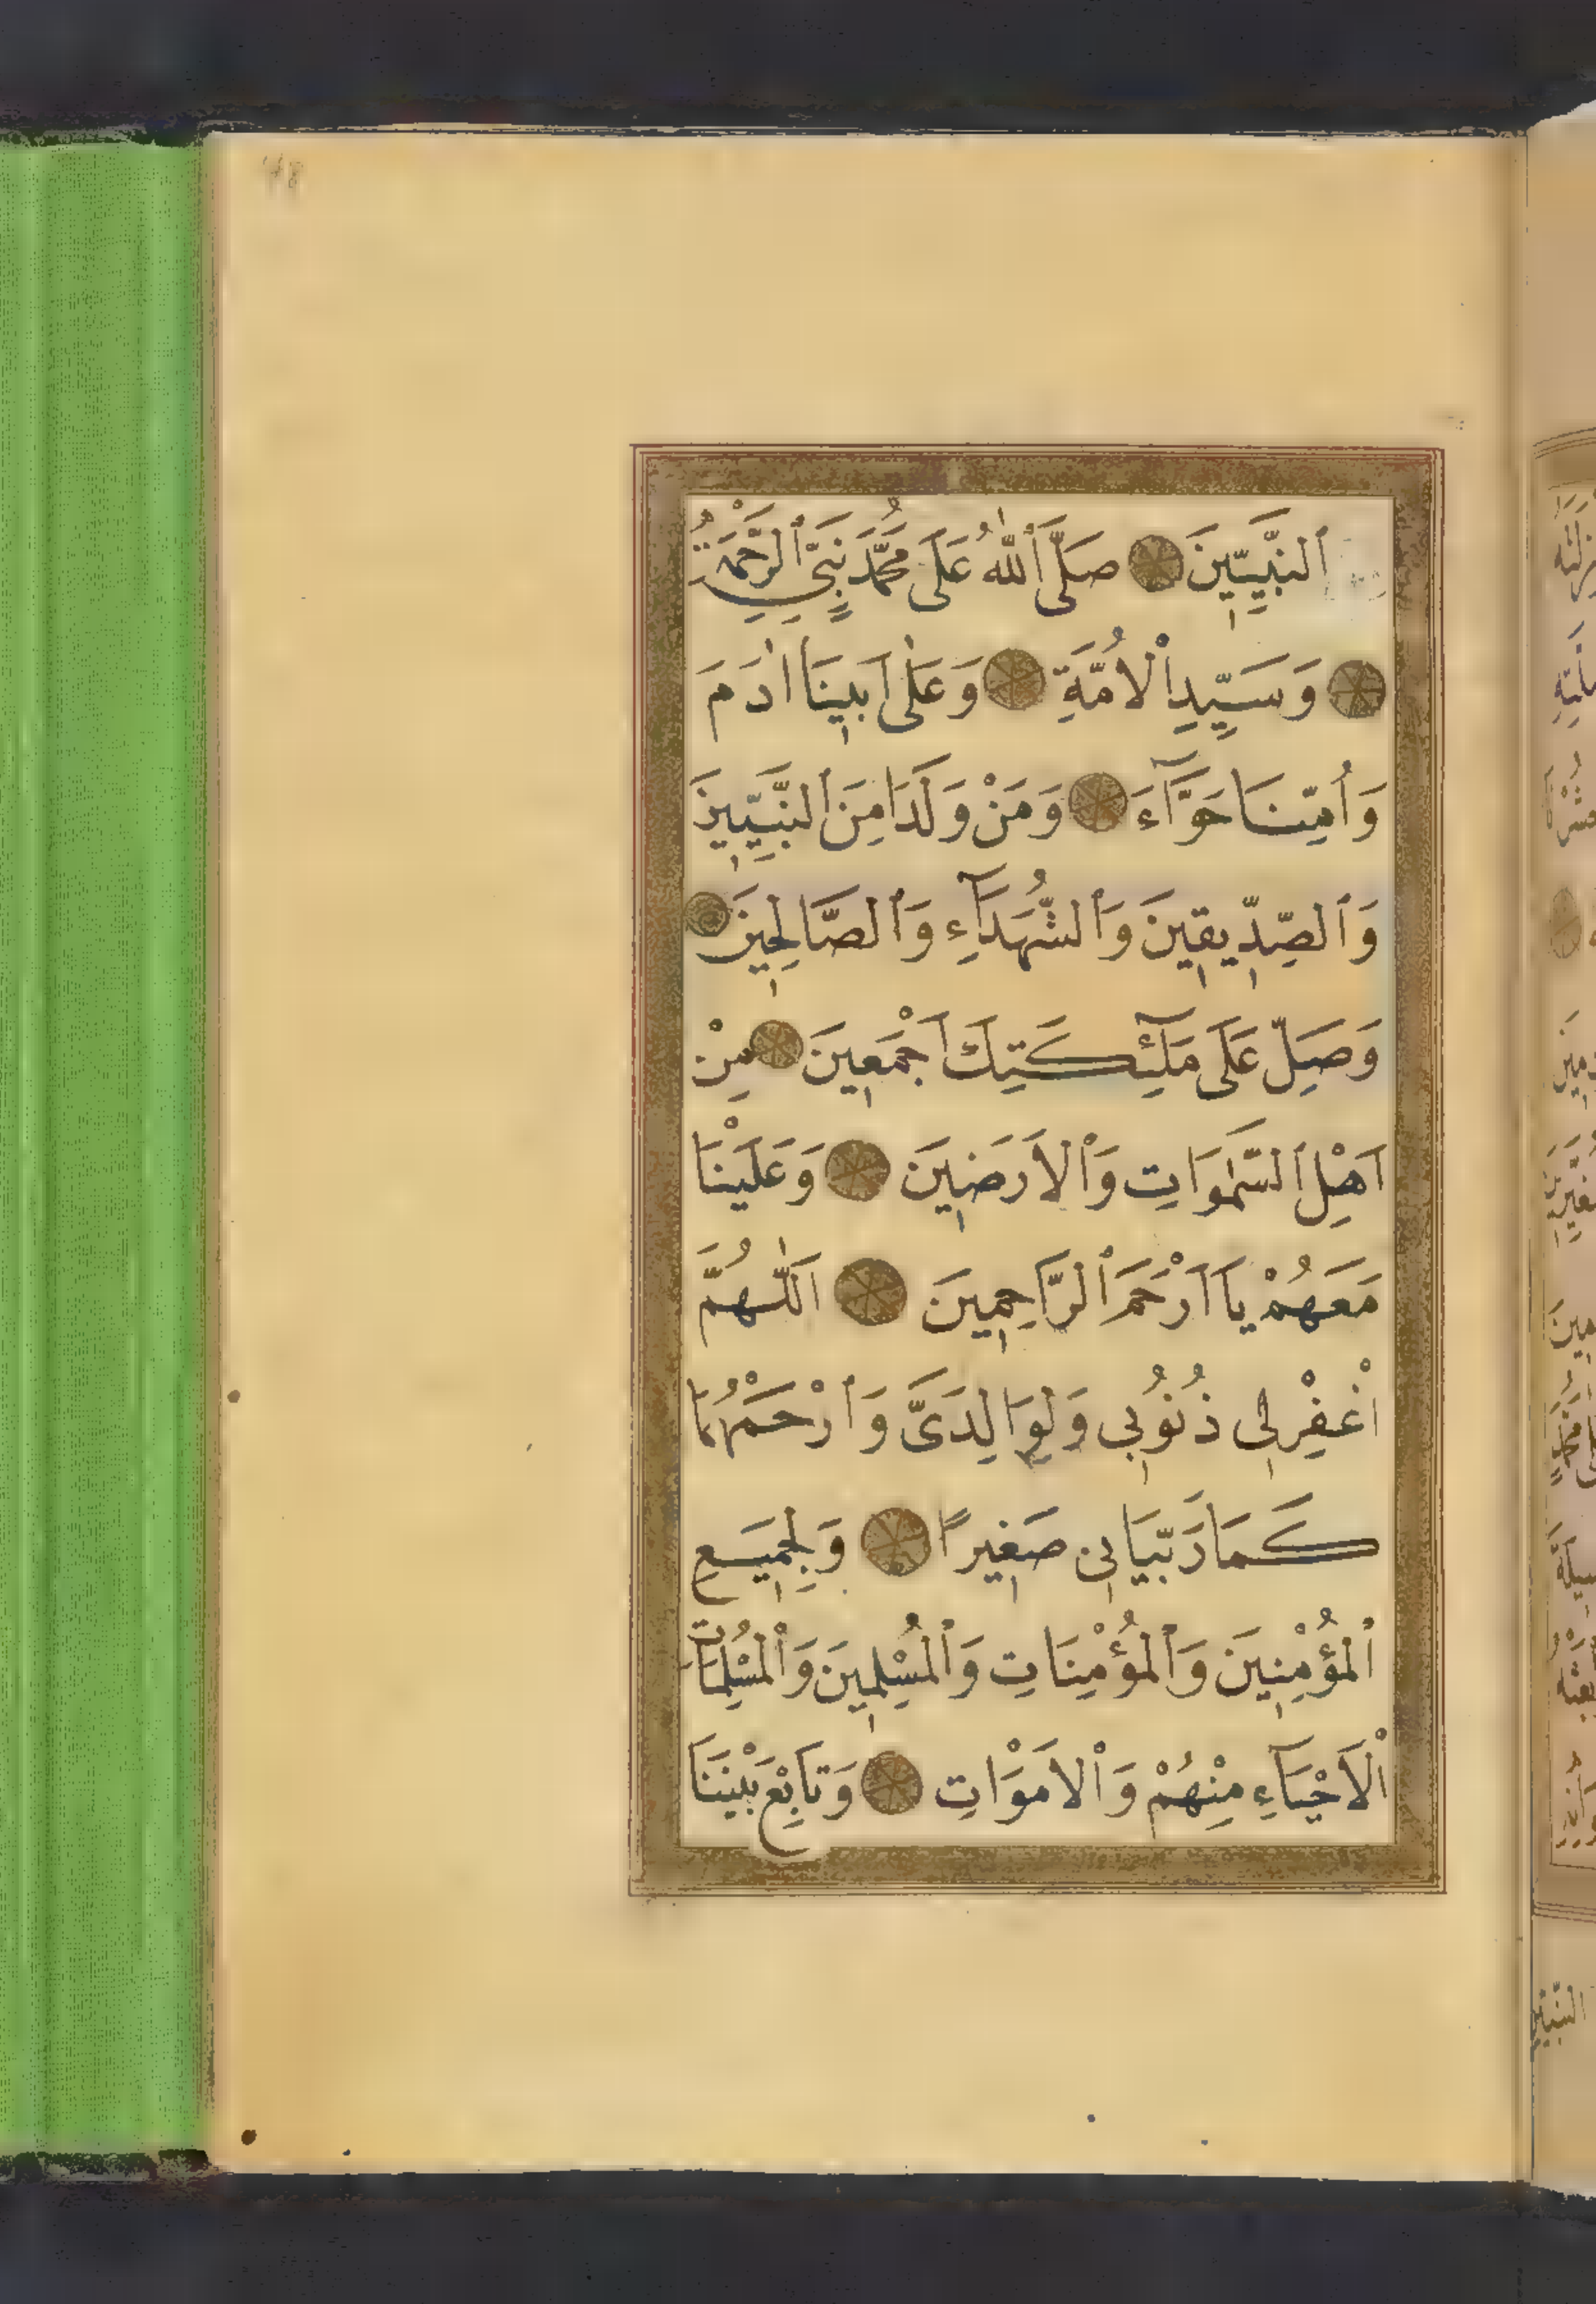 اَلنَّبِيِّينَ ۞ صَلَّى اللّٰهُ عَلَى مُحَمَّدٍ نَبِيِّ الرَّحْمَةِ
۞ وَسَيِّدِ الْاُمَّةِ ۞ وَعَلٰى اَبِينَا اٰدَمَ
وَاُمِّنَا حَوَّآءَ ۞ وَمَنْ وَلَدَا مِنَ النَّبِيِّينَ
وَالصِّدِّيقِينَ وَالشُّهَدَآءِ وَالصَّالِحِينَ ۞
وَصَلِّ عَلَى مَلٰٓئِكَتِكَ اَجْمَعِينَ ۞ مِنْ
اَهْلِ السَّمٰوَاتِ وَالْاَرَضِينَ ۞ وَعَلَيْنَا
مَعَهُمْ يَا اَرْحَمَ الرَّاحِمِينَ ۞ اَللّٰهُمَّ
اغْفِرْ لِى ذُنُوبِى وَلِوَالِدَىَّ وَارْحَمْهُمَا
كَمَا رَبَّيَانِى صَغِيرًا ۞ وَلِجَمِيعِ
الْمُؤْمِنِينَ وَالْمُؤْمِنَاتِ وَالْمُسْلِمِينَ وَالْمُسْلِمَاتِ
الْاَحْيَآءِ مِنْهُمْ وَالْاَمْوَاتِ ۞ وَتَابِعْ بَيْنَنَا